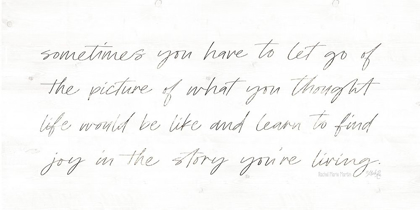 sometimes you have to let go of
the picture of what you thought
life would be like and learn to find
joy in the story you're living.